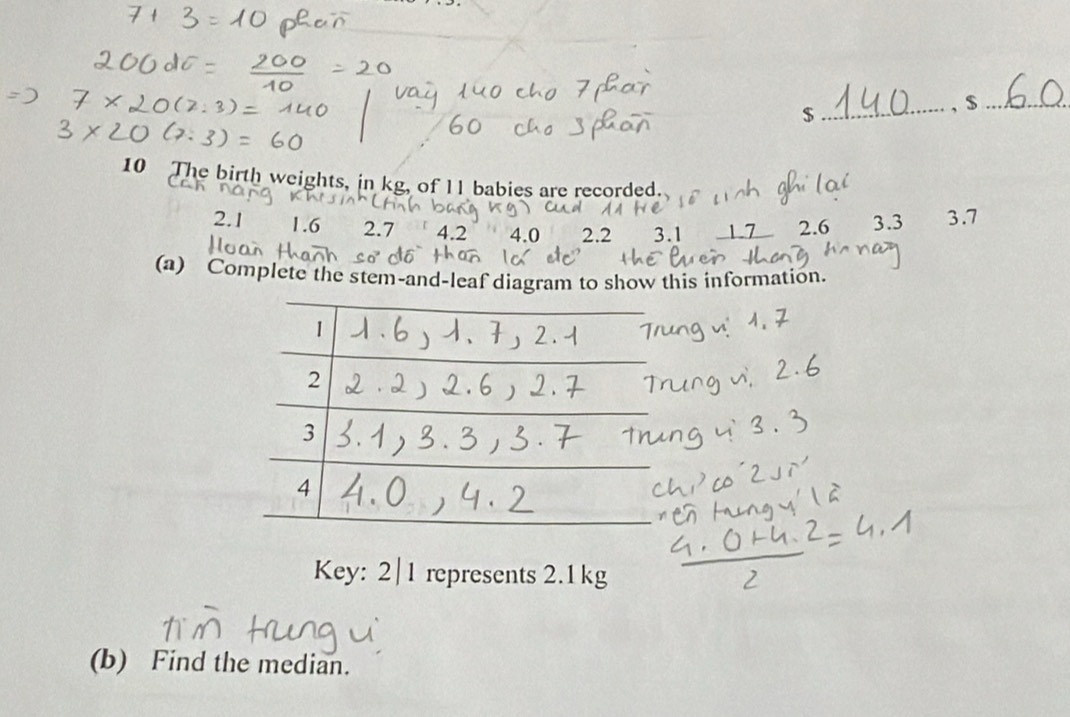 7 + 3 = 10 phần
200 đô = 200/10 = 20
=> 7 × 20 (7:3) = 140 | vậy 140 cho 7 phần
3 × 20 (7:3) = 60 | 60 cho 3 phần
$ 140 , $ 60
10 The birth weights, in kg, of 11 babies are recorded.
Cân nặng khi sinh (tính bằng kg) của 11 trẻ sơ sinh ghi lại
2.1 1.6 2.7 4.2 4.0 2.2 3.1 1.7 2.6 3.3 3.7
Hoàn thành sơ đồ thân lá để thông tin này
(a) Complete the stem-and-leaf diagram to show this information.
1 | 1.6, 1.7, 2.1 Trung vị 1.7
2 | 2.2, 2.6, 2.7 Trung vị 2.6
3 | 3.1, 3.3, 3.7 trung vị 3.3
4 | 4.0, 4.2 chỉ có 2 số
nên trung vị là
4.0+4.2/2 = 4.1
Key: 2|1 represents 2.1 kg
tìm trung vị
(b) Find the median.